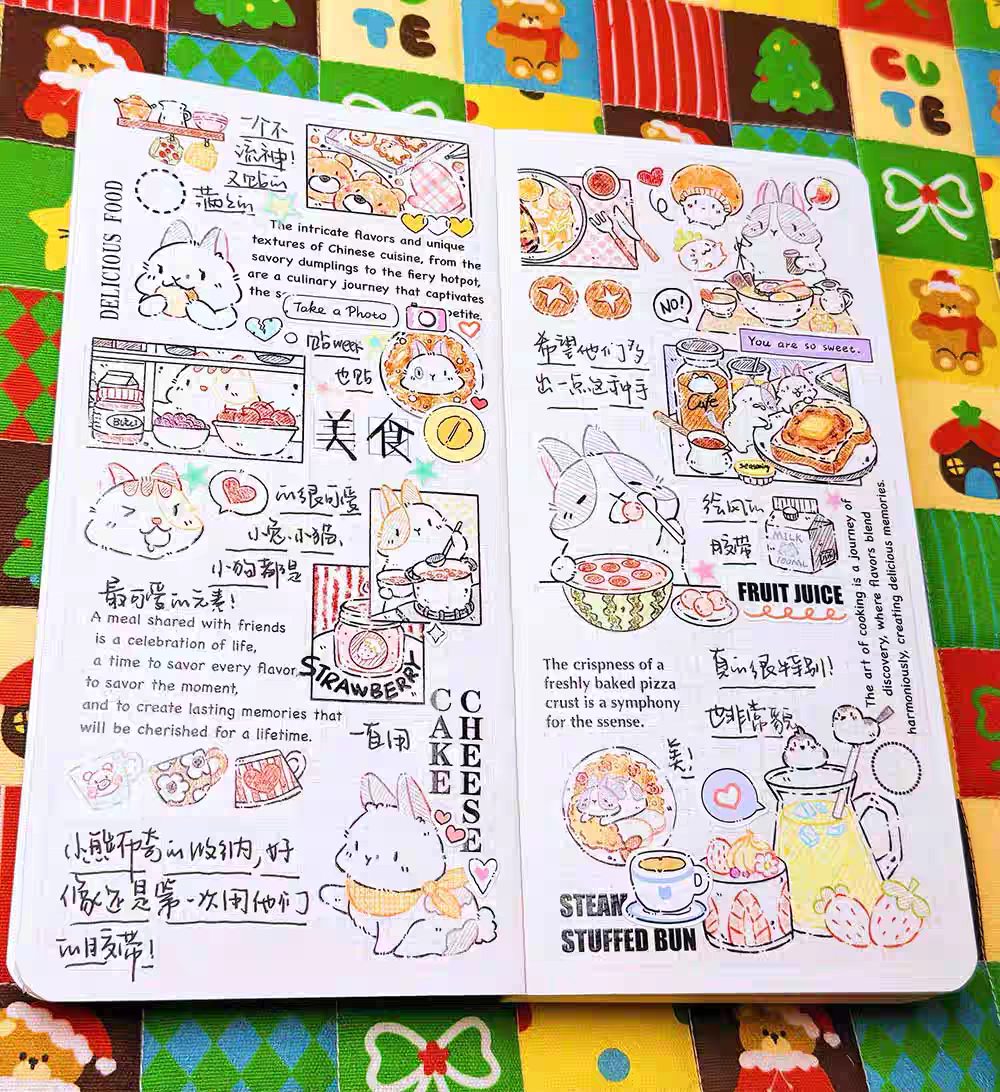 CUTE
CUTE
一个不
流神!
又贴的
满之的
DELICIOUS FOOD
The intricate flavors and unique
textures of Chinese cuisine, from the
savory dumplings to the fiery hotpot,
are a culinary journey that captivates
the s
petite.
Take a Photo
贴week
也贴
美食
的很可爱
小兔、小猫、
小狗都是
最可爱的元素!
A meal shared with friends
is a celebration of life,
a time to savor every flavor,
to savor the moment,
and to create lasting memories that
will be cherished for a lifetime.
STRAWBERRY
一直用
CAKE
CHEESE
小熊布奇的收纳,好
像还是第一次用他们
的胶带!
NO!
希望他们多
出一点这种手
You are so sweet.
Cafe
seasoning
绘风的
胶带
MILK
100ML
FRUIT JUICE
The art of cooking is a journey of
discovery, where flavors blend
harmoniously, creating delicious memories.
The crispness of a
freshly baked pizza
crust is a symphony
for the ssense.
真的很特别!
也非常貌
美!
STEAK
STUFFED BUN